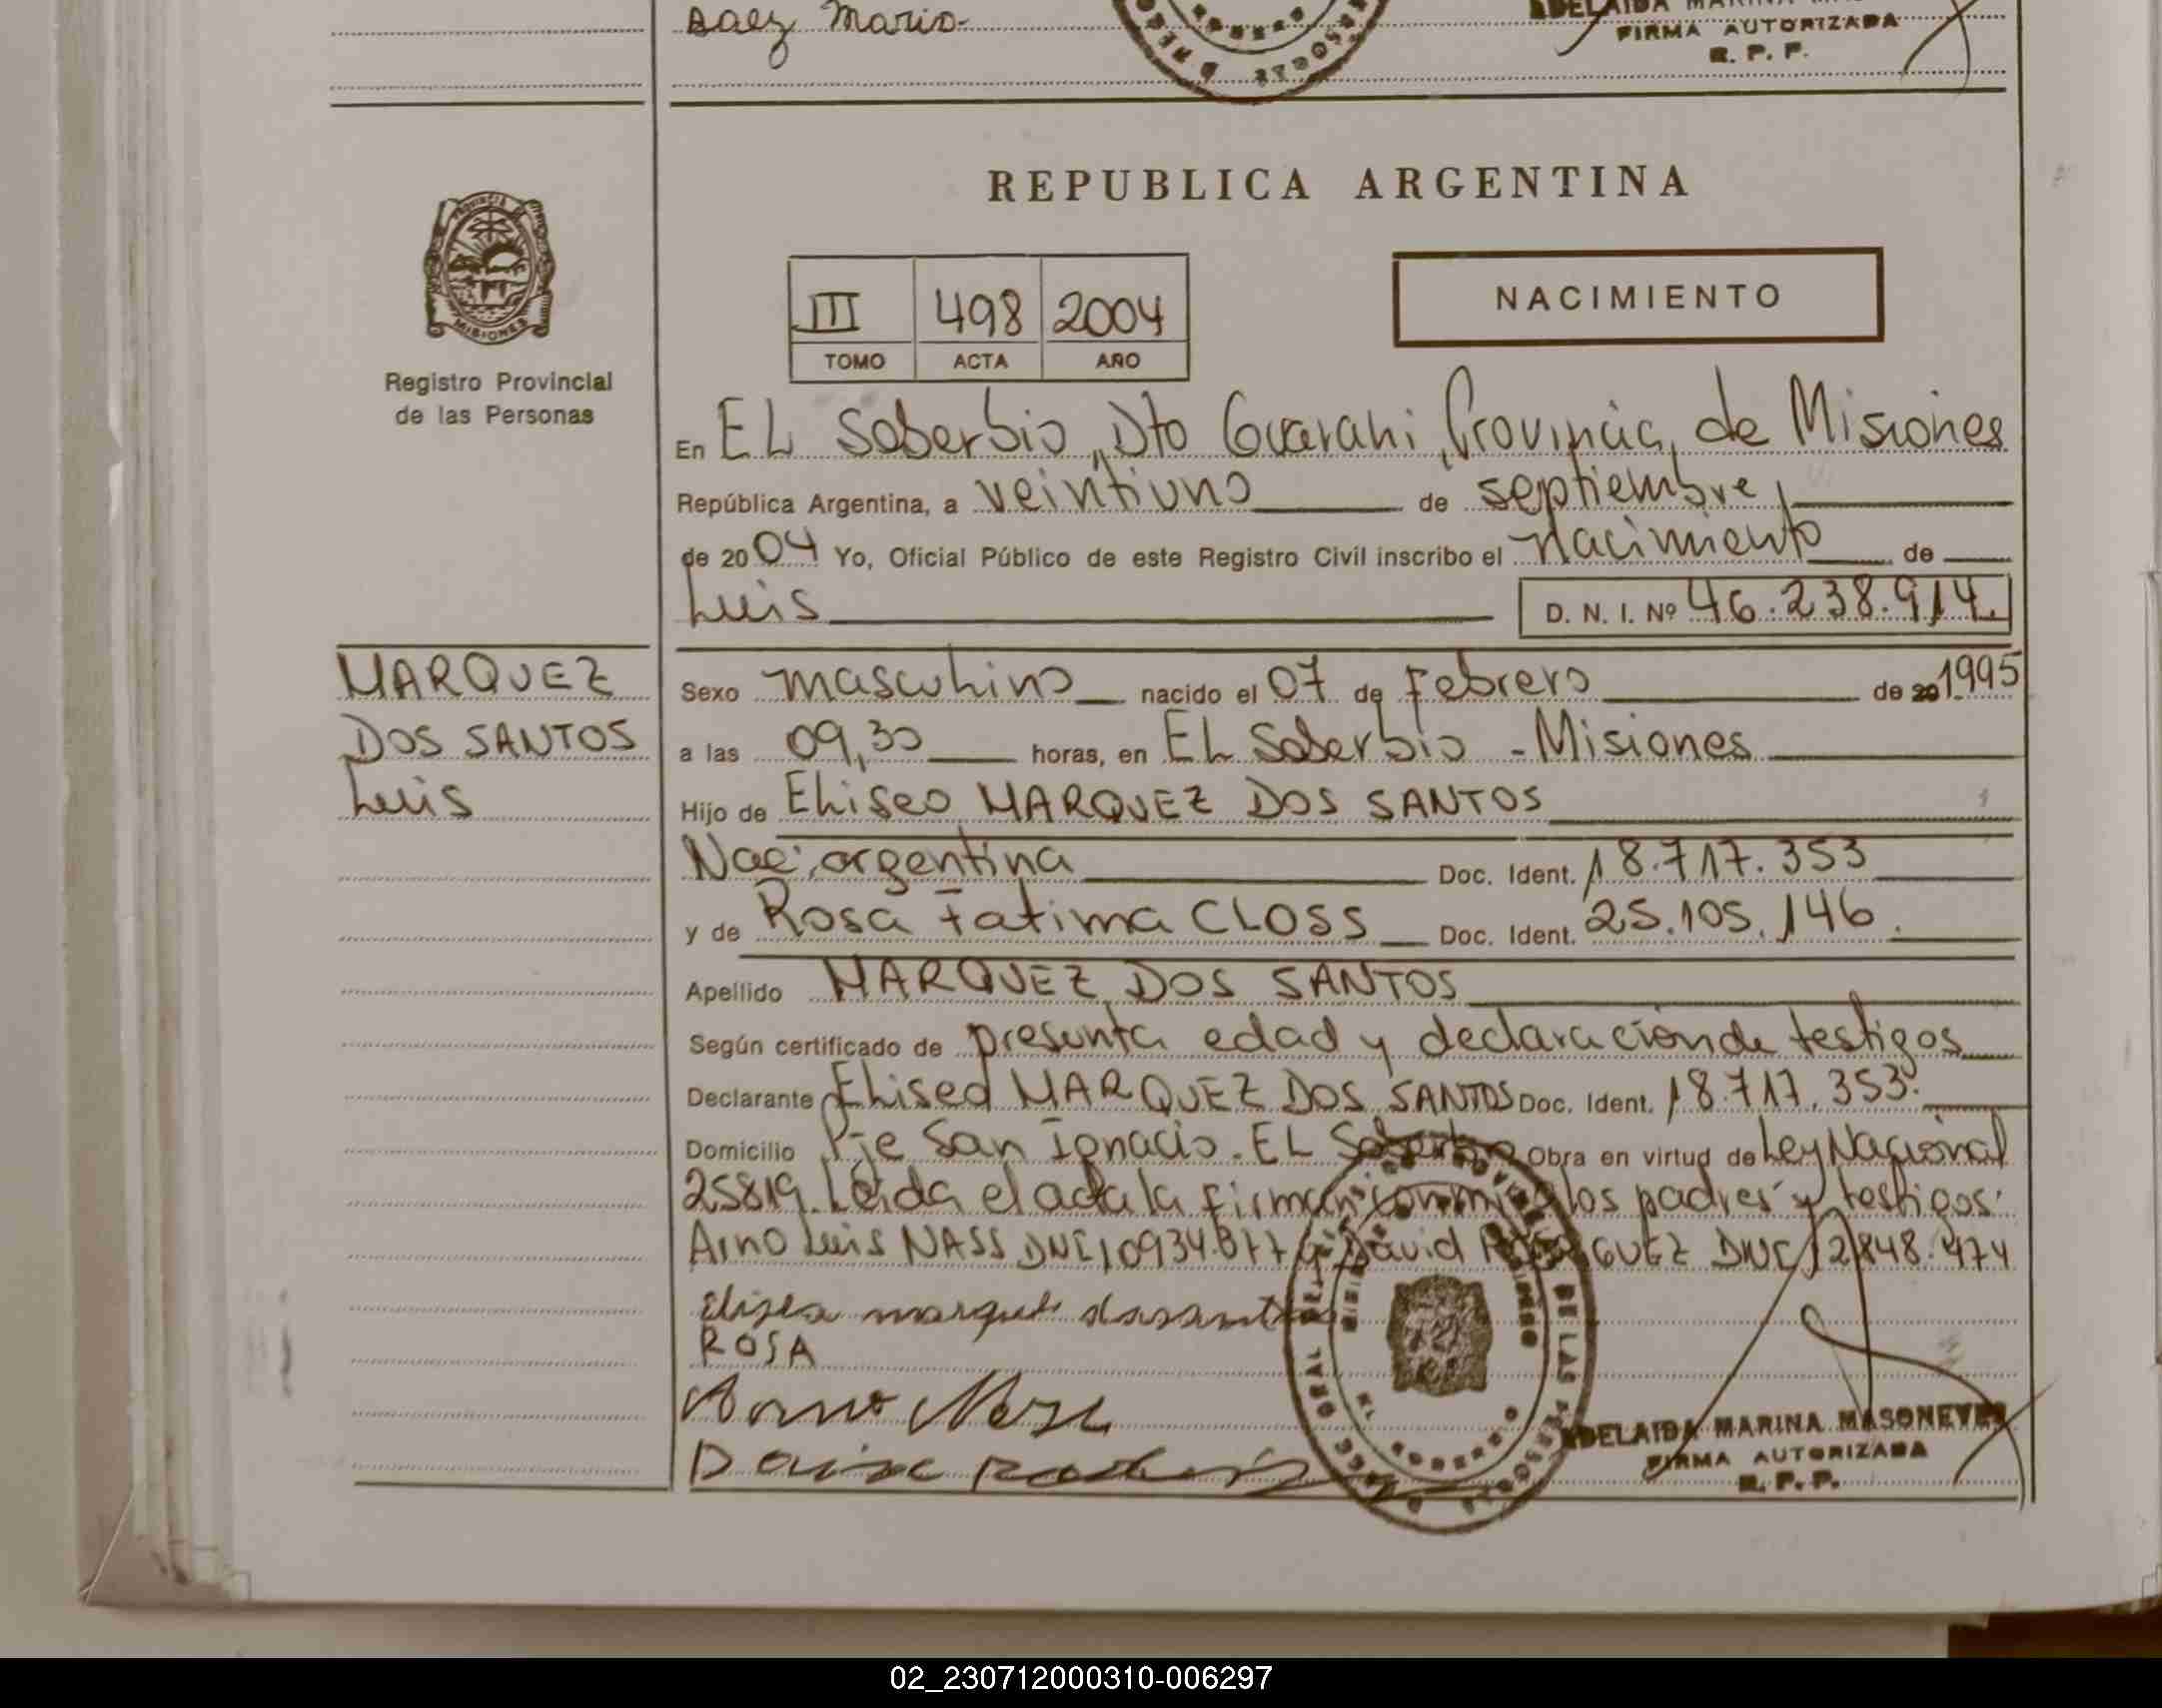 Saez Mario
FIRMA AUTORIZADA
R. P. P.
REPUBLICA ARGENTINA
PROVINCIA
MISIONES
III 498 2004
TOMO ACTA AÑO
NACIMIENTO
Registro Provincial
de las Personas
En EL Soberbio, Dto Guarani, Provincia de Misiones
República Argentina, a veintiuno de septiembre
de 2004 Yo, Oficial Público de este Registro Civil inscribo el nacimiento de
Luis D. N. I. Nº 46.238.914.
MARQUEZ
DOS SANTOS
Luis
Sexo masculino nacido el 07 de Febrero de 20 1995
a las 09,30 horas, en EL Soberbio - Misiones
Hijo de Eliseo MARQUEZ DOS SANTOS
Nac. argentina Doc. Ident. 18.717.353
y de Rosa Fatima CLOSS Doc. Ident. 25.105.146.
Apellido MARQUEZ DOS SANTOS
Según certificado de presunta edad y declaracion de testigos
Declarante Eliseo MARQUEZ DOS SANTOS Doc. Ident. 18.717.353.
Domicilio Pje San Ignacio. EL Soberbio Obra en virtud de Ley Nacional
25819. Leida el acta la firman conmigo los padres y testigos:
Arno Luis NASS DNI 10934.877 y David RODRIGUEZ DNI 12848.474
eliseo marques dossantos
ROSA
Arno Nass
DE LAS PERSONAS
ADELAIDA MARINA MASONEVES
FIRMA AUTORIZADA
R. P. P.
02_230712000310-006297